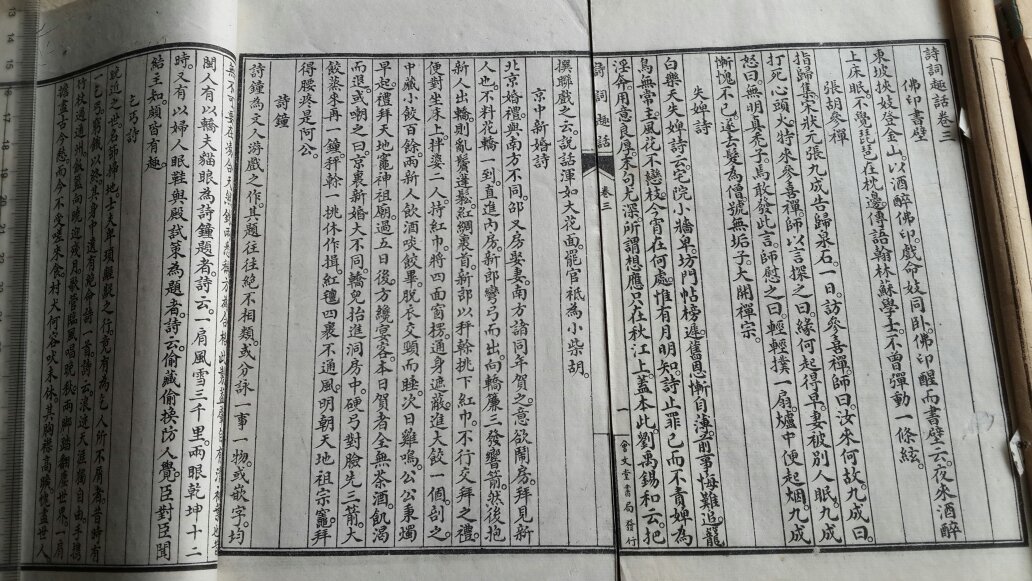 詩詞趣話卷三
佛印書壁
東坡挾妓登金山以酒醉佛印戲命妓同臥佛印醒而書壁云夜來酒醉
上床眠不覺琵琶在枕邊傳語翰林蘇學士不曾彈動一條絃
張胡參禪
指歸集宋狀元張九成告歸丞石一日訪參喜禪師曰汝來何故九成曰
打死心頭火特來參喜禪師以言探之曰緣何起得早妻被別人眠九成
怒曰無明真禿子焉敢發此言師慰之曰輕輕撲一扇爐中便起烟九成
慚愧不已遂去髮為僧號無垢子大開禪宗
失婢詩
白樂天失婢詩云宅院小牆卑坊門帖榜遲舊恩慚自薄前事悔難追籠
鳥無常主風花不戀枝今宵在何處惟有月明知詩止罪己而不責婢為
淫奔用意良厚末句尤深所謂想應只在秋江上蓋本此劉禹錫和云把
詩詞趣話
卷三
一
會文堂書局發行
撰聯戲之云說話渾如大花面罷官祗為小柴胡
京中新婚詩
北京婚禮與南方不同邵又房娶妻南方諸同年賀之意欲鬧房拜見新
人也不料花轎一到直進內房新郎彎弓而出向轎簾三發響箭然後抱
新人出轎則亂鬢蓬鬆紅綢裹首新郎以秤幹挑下紅巾不行交拜之禮
便對坐床上拌婆二人持紅巾將四面窗楞通身遮蔽進大餃一個剖之
中藏小餃百餘兩新人飲酒啖餃畢脫衣交頸而睡次日雞鳴公公秉燭
早起禮拜天地竈神祖廟過五日後方纔宴客本日賀者全無茶酒飢渴
而退或嘲之曰京裏新婚大不同轎兒抬進洞房中硬弓對臉先三箭大
餃蒸來再一鍾秤幹一挑休作揖紅氊四裹不通風明朝天地祖宗竈拜
得腰疼是阿公
詩鐘
詩鐘為文人游戲之作其題往往絕不相類或分詠一事一物或嵌字均
閩人有以轎夫貓眼為詩鐘題者詩云一肩風雪三千里兩眼乾坤十二
時又有以婦人眠鞋與殿試策為題者詩云偷藏偷換防人覺臣對臣聞
結主知頗皆有趣
乞丐詩